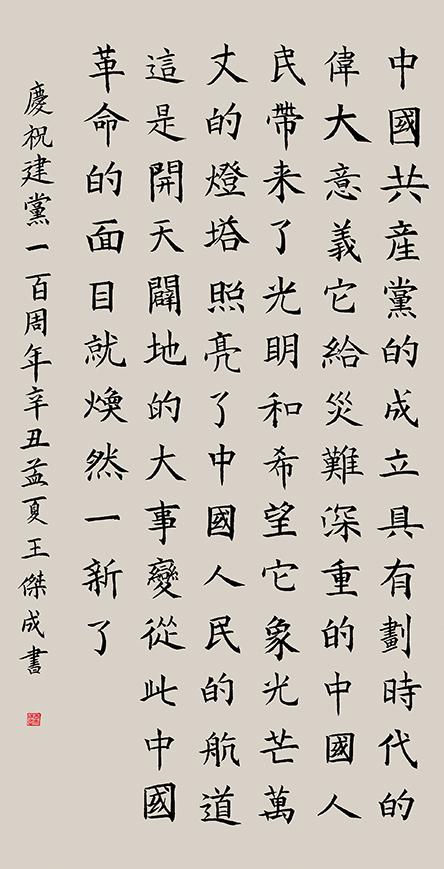 中國共産黨的成立具有劃時代的
偉大意義它給災難深重的中國人
民帶来了光明和希望它象光芒萬
丈的燈塔照亮了中國人民的航道
這是開天闢地的大事變從此中國
革命的面目就煥然一新了
慶祝建黨一百周年辛丑孟夏王傑成書